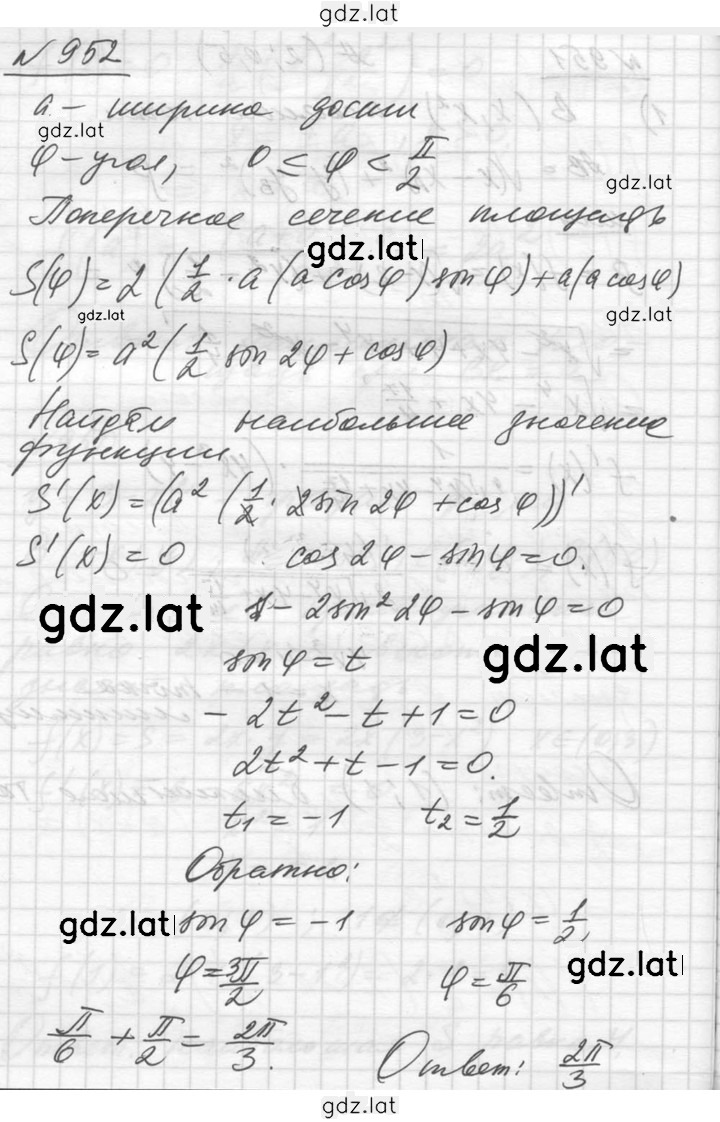 gdz.lat
№ 952
a - ширина доски
gdz.lat
φ - угол, 0 ≤ φ < π/2
gdz.lat
Поперечное сечение площадь
gdz.lat
S(φ) = 2 (1/2 · a (a cos φ) sin φ) + a(a cos φ)
gdz.lat
gdz.lat
S(φ) = a² (1/2 sin 2φ + cos φ)
Найдём наибольшее значение
функции
S'(x) = (a² (1/2 · 2sin 2φ + cos φ))'
S'(x) = 0 cos 2φ - sin φ = 0.
gdz.lat
1 - 2sin² 2φ - sin φ = 0
gdz.lat
sin φ = t
- 2t² - t + 1 = 0
2t² + t - 1 = 0.
t₁ = -1 t₂ = 1/2
Обратно:
gdz.lat
sin φ = -1 sin φ = 1/2,
gdz.lat
φ = 3π/2 φ = π/6
π/6 + π/2 = 2π/3.
Ответ: 2π/3
gdz.lat